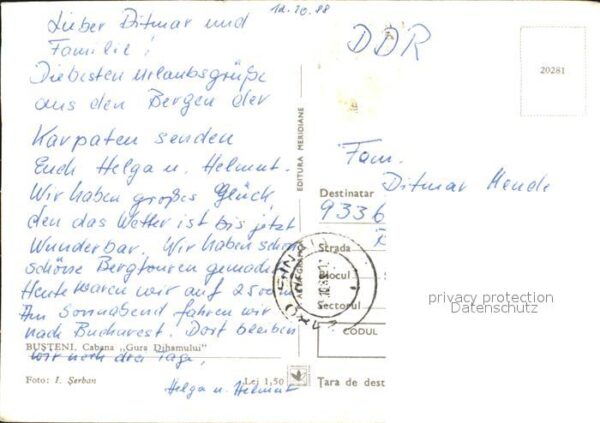 12.10.88
Lieber Ditmar und
Familie!
Die besten Urlaubsgrüße
aus den Bergen der
Karpaten senden
Euch Helga u. Helmut.
Wir haben großes Glück,
den das Wetter ist bis jetzt
Wunderbar. Wir haben schon
schöne Bergtouren gemacht
Heute waren wir auf 2500m
Am Sonnabend fahren wir
nach Bucharest. Dort bleiben
wir noch drei Tage,
Helga u. Helmut
BUȘTENI. Cabana „Gura Dihamului”
Foto: I. Șerban
Lei 1,50
EDITURA MERIDIANE
DDR
20281
Fam.
Destinatar
Ditmar Hende
9336
Strada
Blocul
Sectorul
CODUL
Țara de dest
privacy protection
Datenschutz